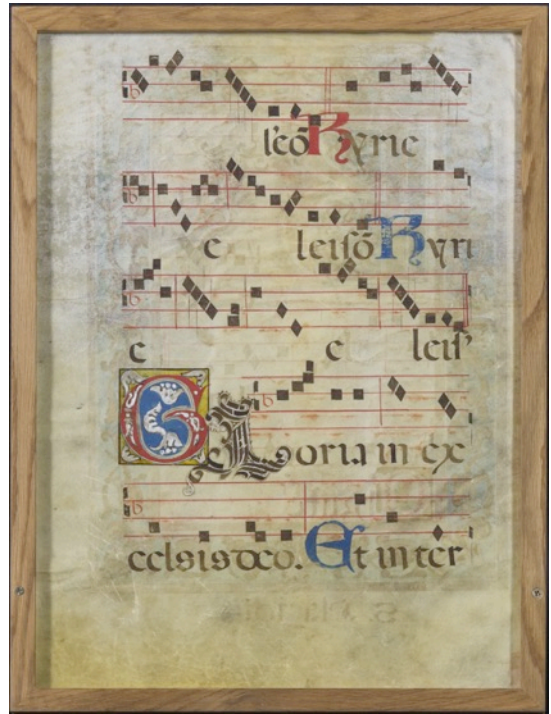 l'eō Kyrie
e leiſō Kyri
e e leiſ'
Gloria in ex
celsis deo. Et in ter